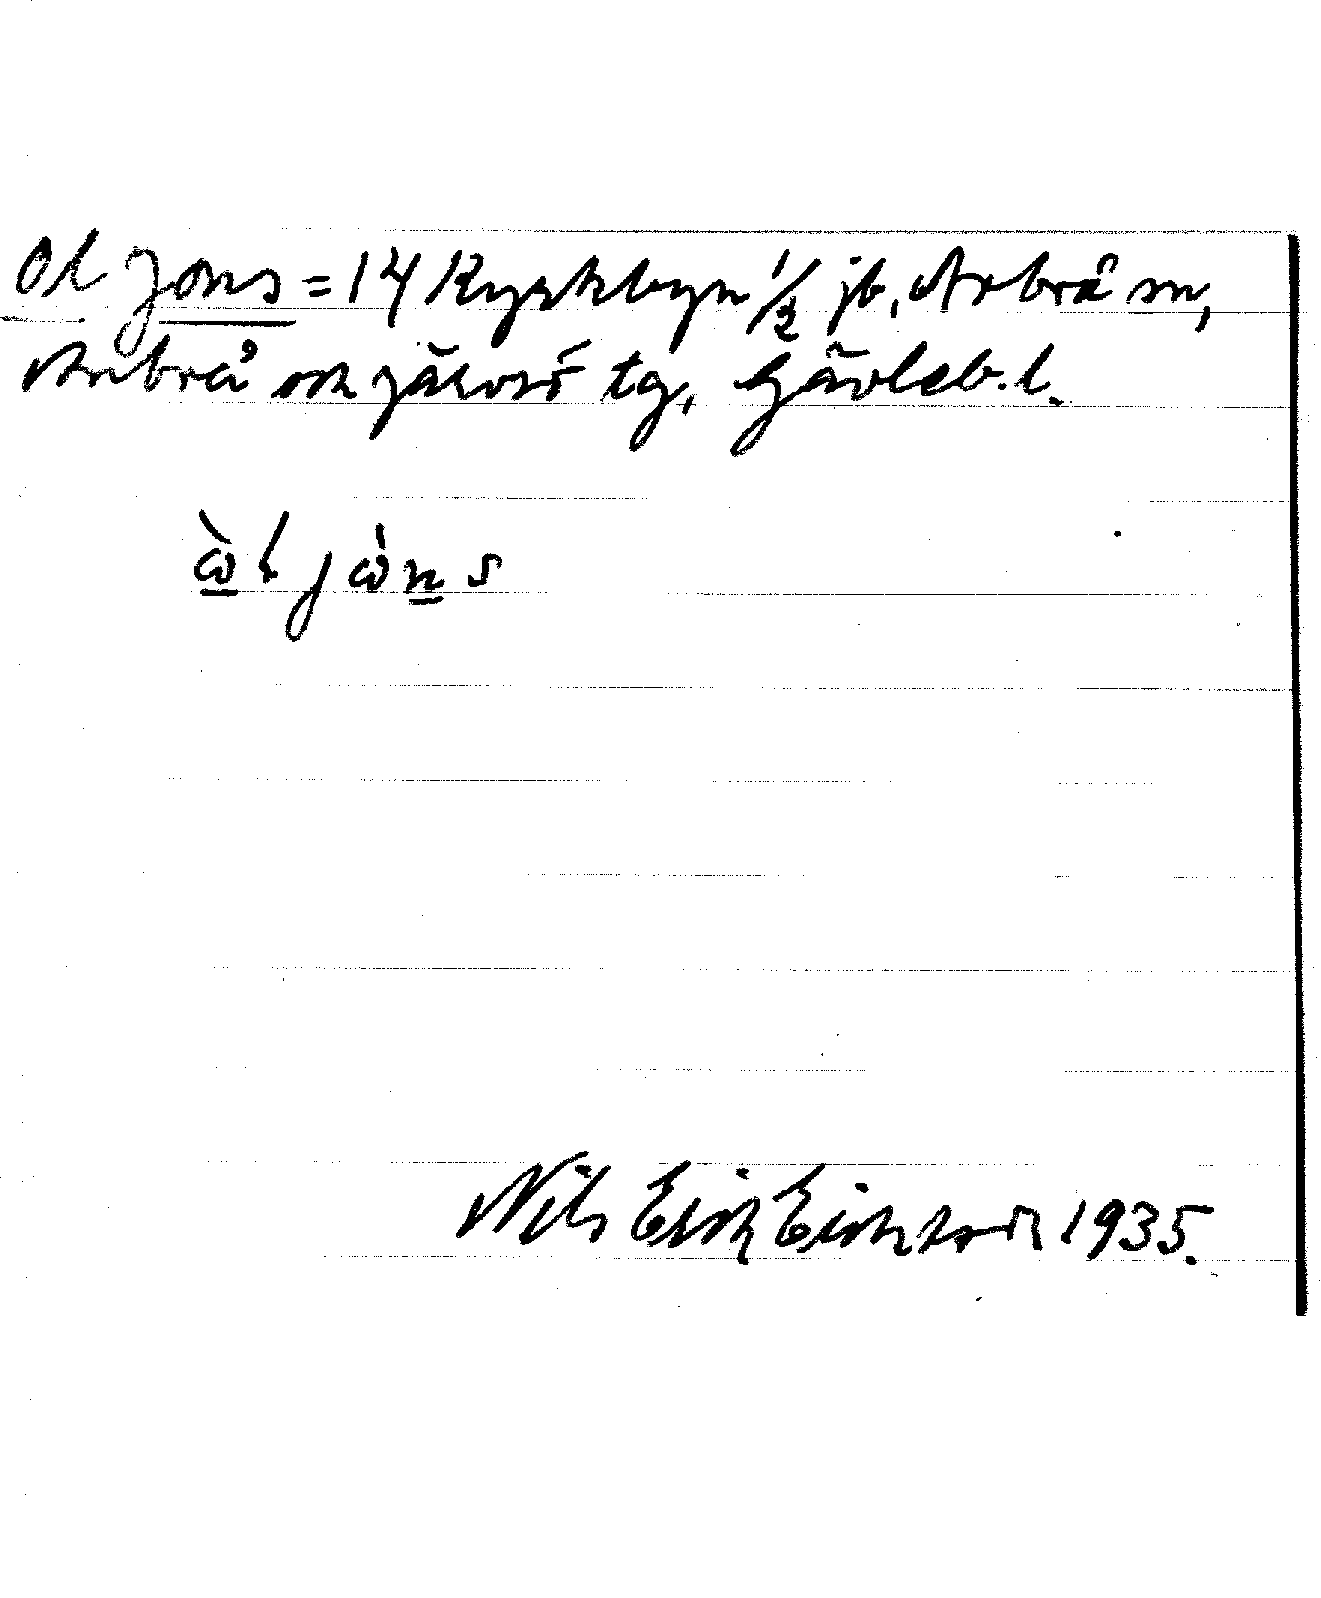 Ol Jons = 14 Kyrkbyn 1/2 jb, Arbrå sn,
Arbrå och Järvsö tg, Gävleb. l.
Nils Erik Eriksson 1935.